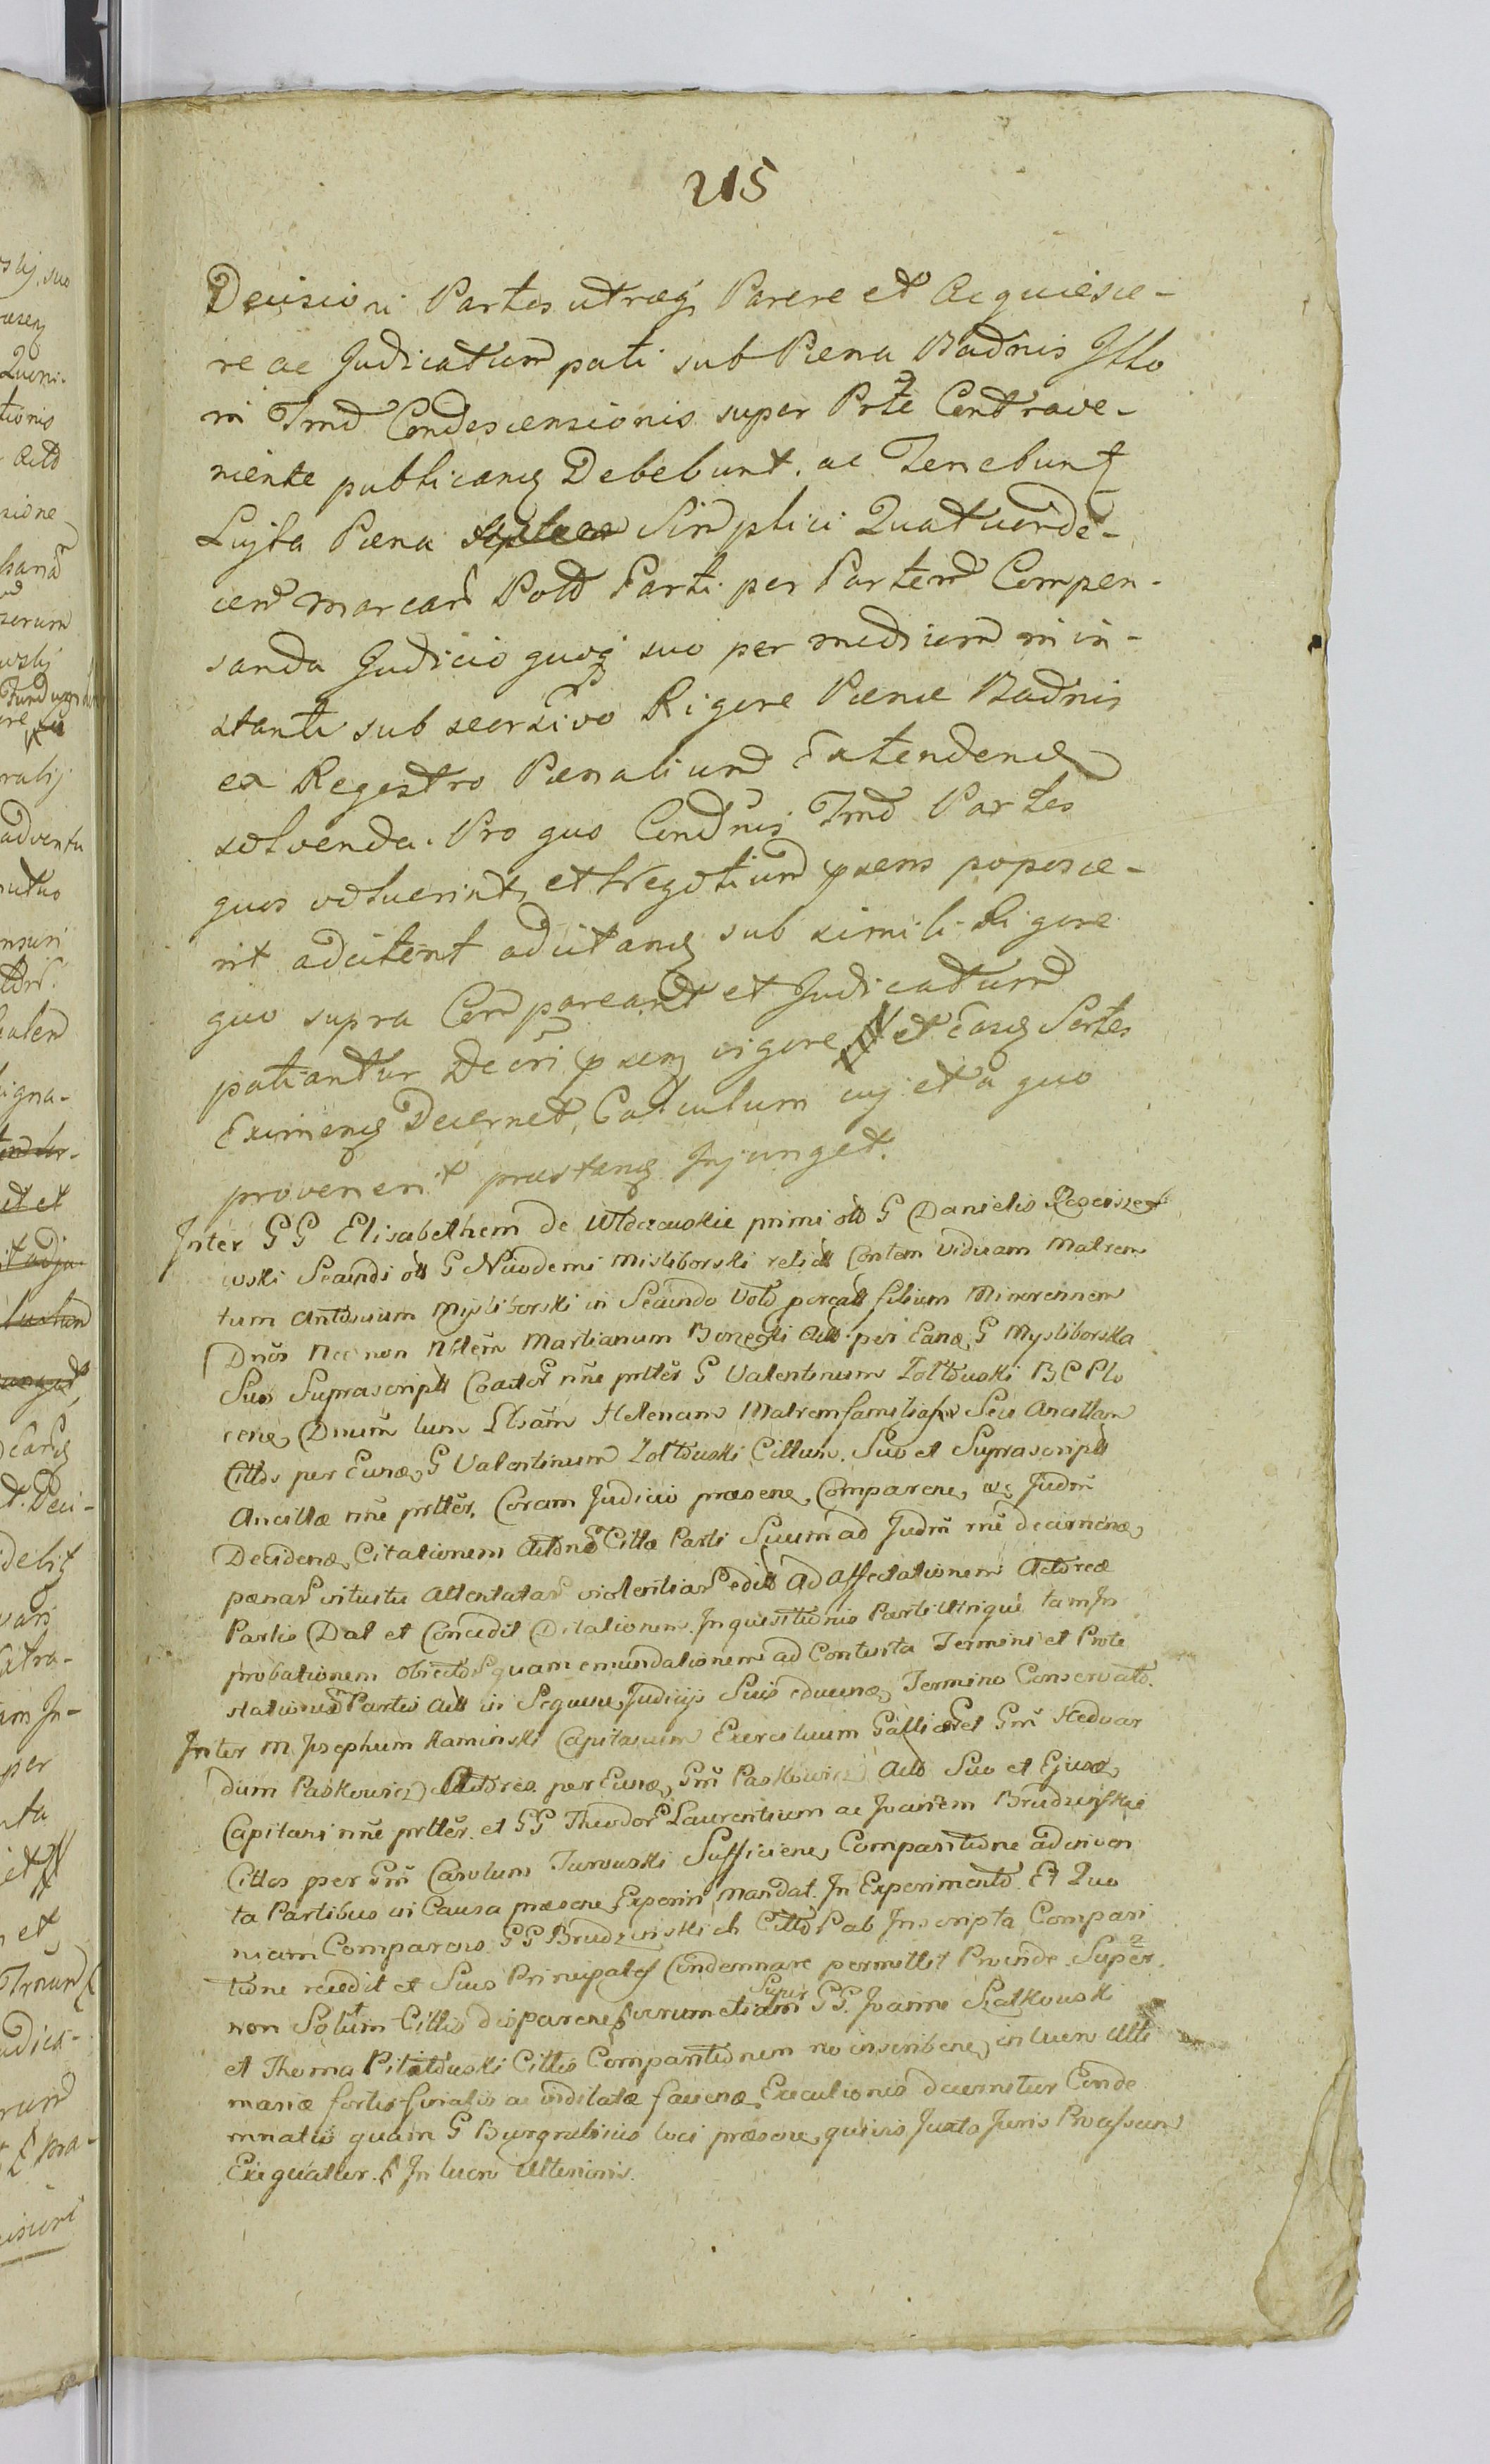 215
Decisioni Partes utraeq, Parere et Acquiesce-
re ac Judicatum pati sub Poena Badnis Itto
in Tmo Condescensionis super Prte Contrave-
niente publicang Debebunt, ac Tenebunt
Luyta Poena Simplici Quatuorde-
cem marcar Pold Parti per Partem Compen-
sanda Judicio quoq suo per medium in in-
stanti sub seorsivo Rigore Poenae Badnis
ex Regestro Poenalium Extendend
solvenda. Pro quo Condnis Tmo Partes
quos voluerint, et Negotium psens poposce-
rit adcitent adcitang sub simili Rigore
quo supra Compareant et Judicatum
patiantur Decri psen vigore et Easq Partes
Eximeng Decernet, Calculum cuj et a quo
provenerit praestang Injunget.
Inter GG Elisabethem de primi oto G Danielis
wski Secundi oto G Nicodemi Misliborski relict Contem Viduam Matrem
tum Antonium Mysliborski in Secundo Voto procat filium Minorennem
Dnos Nec non Nblem Martianum Act per Eand G Mysliborska
Suo Suprascript Coactor nne prtter G Valentinum Zoltowski B C Plo
cene Dnum tum Lbsam Helenam Matremfamilias Seu Ancillam
Cittos per Eund G Valentinum Zoltowski Cittum. Suo et Suprascript
Ancillae nne prtter. Coram Judicio praesene, Comparene, ac Judm
Decidene, Citationem Actorea Citta Parti Suum ad Judm nne decernene,
paenar intuitu Attentatar violentiar edit Ad affectationem Actoreae
Partis Dat et Concedit Dilationem Inquisitionis Parti Utrique tam In
probationem objector quam emundationem ad Contenta Termini et Prote
stationis Partis Act in Sequen Judicijs Suis educend, Termino Conservato.
Inter M Josephum Kaminski Capitaneum Exercituum Galliae et Gm Hedvar
dum Paskowicz Actores per Eund, Gm Paskowicz Acto Suo et Ejusd,
Capitani nne prtter. et GG Theodor Laurentium ac Joannem Brudzinskie
Cittos per Gm Carolum Turowski Sufficiene, Comparitione adinven
ta Partibus in Causa praesene, Experiri mandat. In Experimento Et Quo
niam Comparens GG Brudzinskich Citto Pab Inscripta Compari
tione recedit et Suos Principales Condemnare permittit Proinde Super
non Solum Cittis disparene, verum etiam Super GG. Joanne Szatkowski
et Thoma Pitatowski Cittis Comparitionem no inscribene, in lucro Ulti
mariae fortis finalis ac inditatae faciend, Executionis decernitur Conde
mnatis quam G Burgrabius loci praesene, quivis Juxta Juris Processum
Exequatur. In lucro Ulterioris.